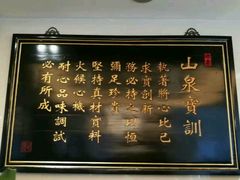 山泉寶訓
執著將心比己
求實剖析
務必持之以恆
彌足珍貴
堅持真材實料
火候心機
耐心品味調試
必有所成